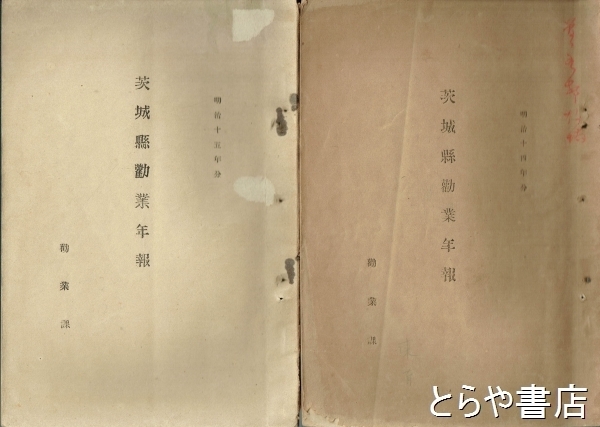 明治十五年分
茨城縣勸業年報
勸業課
明治十四年分
茨城縣勸業年報
勸業課
とらや書店